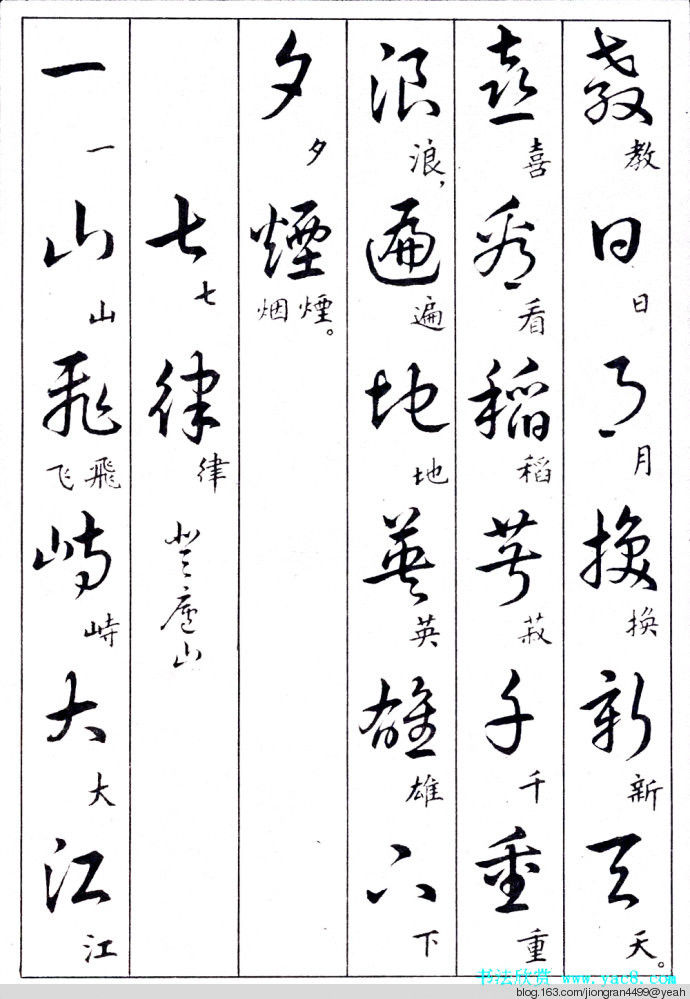 教日月換新天
教日月换新天。
喜看稻菽千重
喜看稻菽千重
浪遍地英雄下
浪，遍地英雄下
夕煙
夕煙。烟
七律
七律
登廬山
一山飛峙大江
一山飛飞峙大江
书法欣赏 www.yac8.com
blog.163.com/jiongran4499@yeah